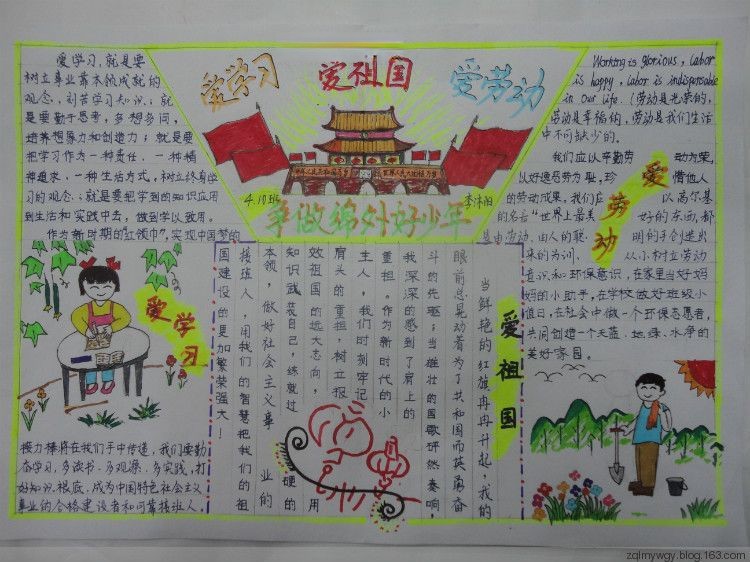 爱学习
爱祖国
爱劳动
中华人民共和国万岁
世界人民大团结万岁
4.10班
争做绵外好少年
爱学习，就是要
树立事业靠本领成就的
观念，刻苦学习知识；就
是要勤于思考，多想多问，
培养想象力和创造力；就是要
把学习作为一种责任、一种精
神追求、一种生活方式，树立终身学
习的观念；就是要把学到的知识应用
到生活和实践中去，做到学以致用。
作为新时期的"红领巾"，实现中国梦的
爱学习
接力棒将在我们手中传递，我们要勤
奋学习、多读书、多观源、多实践，打
好知识根底，成为中国特色社会主义
事业的合格建设者和可靠接班人。
爱祖国
当鲜艳的红旗冉冉升起，我的
眼前总晃动着为了共和国而英勇奋
斗的先驱；当雄壮的国歌砰然奏响，
我深深的感到了肩上的
重担。作为新时代的小
主人，我们时刻牢记
肩头的重担，树立报
效祖国的远大志向，用
知识武装自己，练就过硬的
本领，做好社会主义事业的
接班人，用我们的智慧把我们的祖
国建设的更加繁荣强大！
Working is glorious, labor
is happy, labor is indispensable
in Our life.（劳动是光荣的，
劳动是幸福的，劳动是我们生活
中不可缺少的。
爱劳动
我们应以辛勤劳动为荣，
以好逸恶劳为耻，珍惜他人
的劳动成果，我们应以高尔基
的名言"世界上最美好的东西，都
是由劳动、由人的聪明的手创造出
来的为训，从小树立劳动
意识和环保意识，在家里当好妈
妈的小助手，在学校做好班级小
值日，在社会中做一个环保志愿者，
共同创造一个天蓝、地绿、水净的
美好家园。
zqlmywgy.blog.163.com